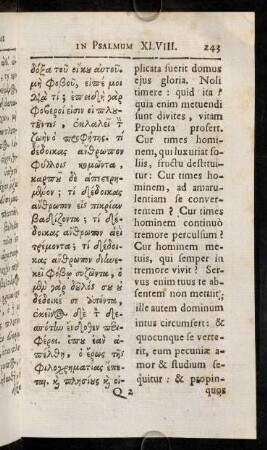 IN PSALMUM XLVIII. 243
δόξα τοῦ οἴκου αὐτοῦ.
μὴ φοβοῦ, εἰπέ μοι
διὰ τί; ἐπειδὴ γὰρ
φοβεροί εἰσιν οἱ πλου-
τοῦντες, ἐκκαλεῖ τὴν
ζωὴν ὁ προφήτης. τί
δέδοικας ἄνθρωπον
φύλλοις κομῶντα,
καρποῦ δὲ ἀπεστερη-
μένον; τί δέδοικας
ἄνθρωπον εἰς πικρίαν
βαδίζοντα; τί δέ-
δοικας ἄνθρωπον ἀεὶ
τρέμοντα; τί δέδοι-
κας ἄνθρωπον διηνε-
κεῖ φόβῳ συζῶντα, ὁ
μὲν γὰρ δοῦλός σου οὐ
δέδοικέ σε ἀπόντα,
ἐκεῖνος δὲ τὸν δε-
σπότην ἔνδοθεν περι-
φέρει. ὅπου ἐὰν
ἀπέλθῃ, ὁ ἔρως τῆς
φιλοχρηματίας ἕπε-
ται. καὶ πλησίους καὶ οἰ-
plicata fuerit domus
ejus gloria. Noli
timere: quid ita?
quia enim metuendi
sunt divites, vitam
Propheta profert.
Cur times homi-
nem, qui luxuriat fo-
liis, fructu destitui-
tur: Cur times ho-
minem, ad amaru-
lentiam se conver-
tentem? Cur times
hominem continuò
tremore perculsum?
Cur hominem me-
tuis, qui semper in
tremore vivit? Ser-
vus enim tuus te ab-
sentem non metuit;
ille autem dominum
intus circumfert: &
quocunque se verte-
rit, eum pecuniæ a-
mor & studium se-
quitur: & propin-
Q 2 quos